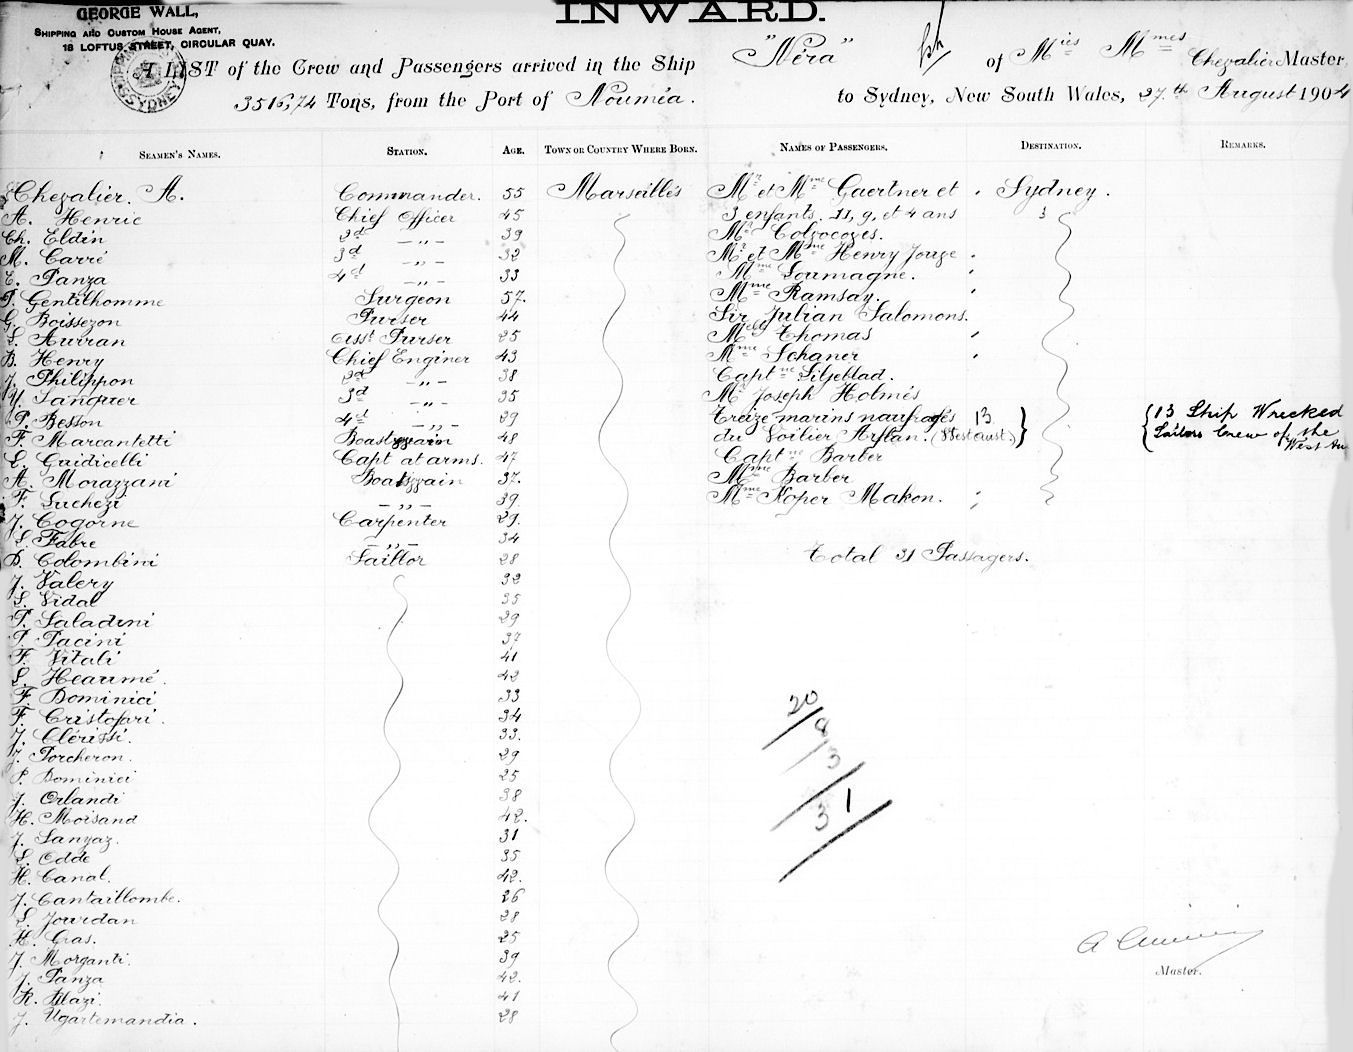 GEORGE WALL,
SHIPPING AND CUSTOM HOUSE AGENT,
18 LOFTUS STREET, CIRCULAR QUAY.
INWARD.
SYDNEY
A LIST of the Crew and Passengers arrived in the Ship "Néra" of Mies Mmes Chevalier Master,
3516,74 Tons, from the Port of Nouméa. to Sydney, New South Wales, 27th August 1904
SEAMEN'S NAMES. STATION. AGE. TOWN OR COUNTRY WHERE BORN. NAMES OF PASSENGERS. DESTINATION. REMARKS.
Chevalier. A. Commander. 55 Marseilles Mr et Mme Gaertner et Sydney.
A. Henric Chief Officer 45 3 enfants. 11, 9, et 4 ans 3
Ch. Eldin 2d —„— 39 Mr
M. Carré 3d —„— 32 Mr et Mme Henry Jouge
E. Panza 4d —„— 33 Mme Loumagne.
P. Gentilhomme Surgeon 57. Mme Ramsay.
G. Boissezon Purser 44 Sir Julian Salomons.
L. Aurran Asst Purser 25 Melle Thomas
B. Henry Chief Enginer 43 Mme Schaner
J. Philippon 2d —„— 38 Captne Liljeblad.
Y. Tanquer 3d —„— 35 Mr Joseph Holmés
P. Besson 4d —„— 29 Treize marins naufragés 13 } {13 Ship Wrecked
F. Marcantetti 48 du Voilier (West aust.) Sailors Crew of the
West Au
E. Guidicelli Capt at arms. 47 Captne Barber
A. Morazzani 37. Mme Barber
F. Luchezi —„— 39 Mme Roper Makon.
J. Cogorne Carpenter 29.
L. Fabre —„— 34
D. Colombini Saillor 28 Total 31 Passagers.
J. Valery 32
L. Vidal 35
P. Saladini 29
P. Pacini 37
F. Vitali 41
L. Heaumé. 42
F. Dominici 33
F. Cristofari. 34
J. Clérissi. 33.
J. Porcheron. 29
P. Dominici 25
J. Orlandi 38
H. Moisand 42.
J. Sanyaz. 31
L. Odde 35
H. Canal. 42.
J. Cantaillombe. 26
L. Jourdan 28
H. Gras. 25
J. Morganti. 39
J. Panza 42.
R. Blazi. 41
J. Ugartemandia. 28
20/8/3
31
Master.